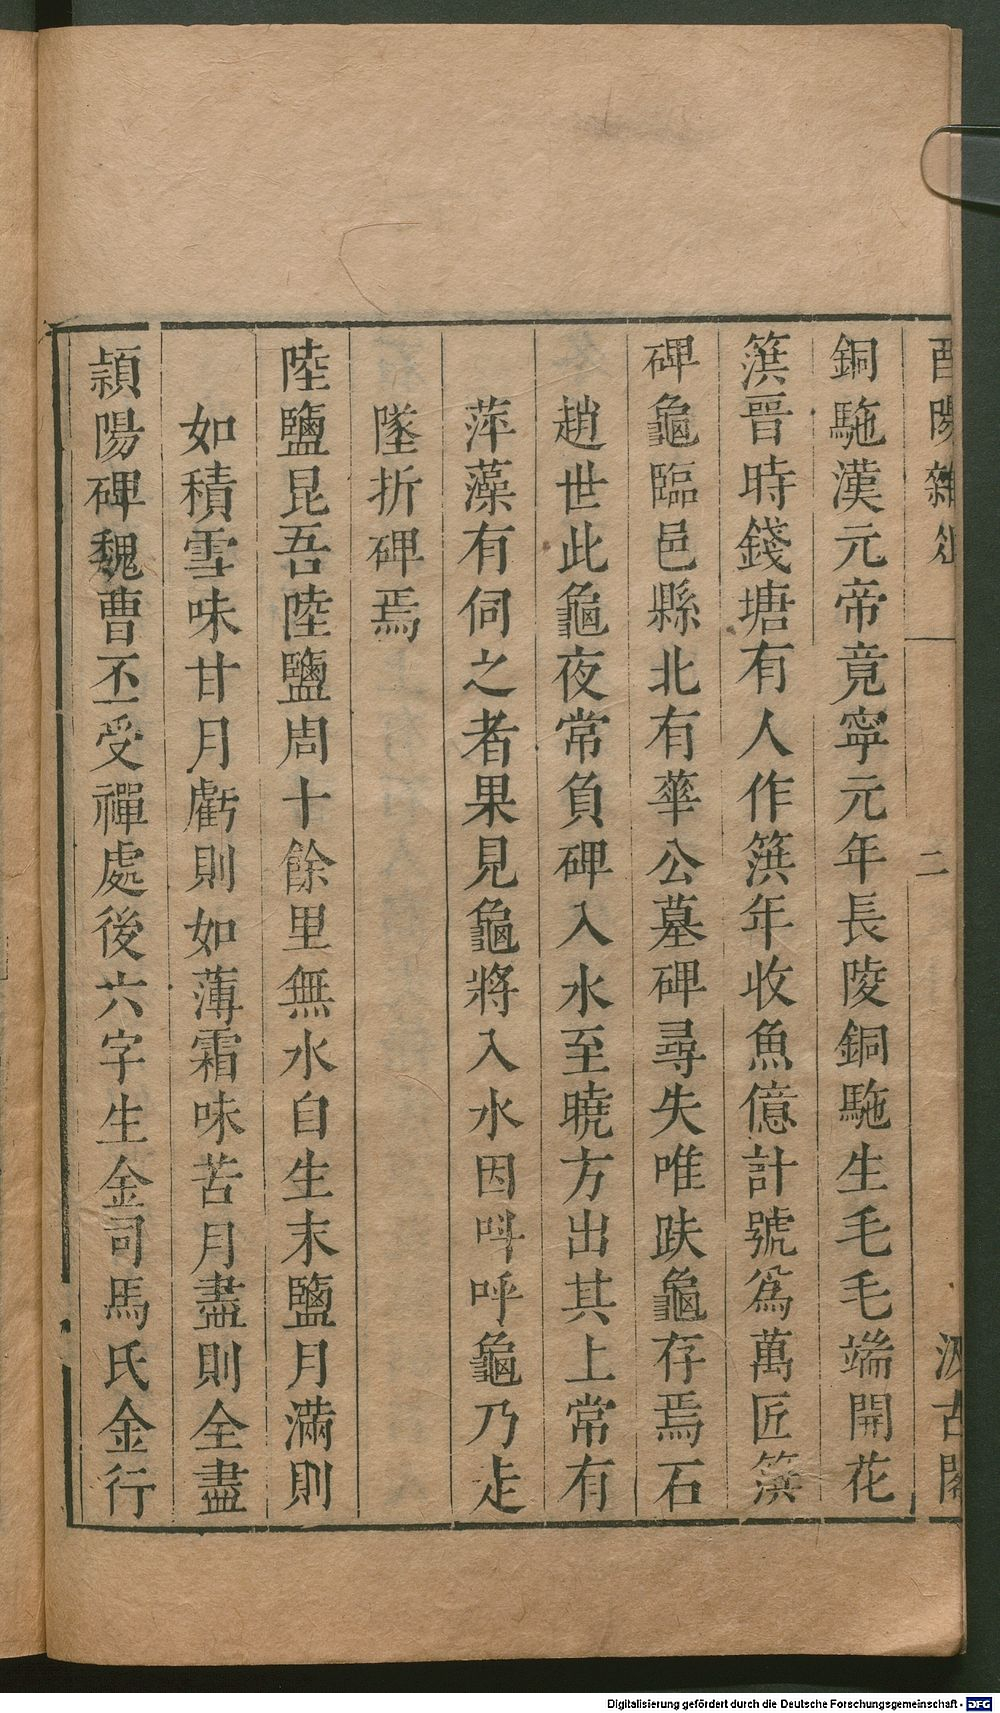 酉陽雜俎
二
汲古閣
銅駞漢元帝竟寧元年長陵銅駞生毛毛端開花
簱晉時錢塘有人作簱年收魚億計號爲萬匠簱
碑龜臨邑縣北有華公墓碑尋失唯趺龜存焉石
趙世此龜夜常負碑入水至曉方出其上常有
萍藻有伺之者果見龜將入水因呌呼龜乃走
墜折碑焉
陸鹽昆吾陸鹽周十餘里無水自生末鹽月滿則
如積雪味甘月虧則如薄霜味苦月盡則全盡
潁陽碑魏曹丕受禪處後六字生金司馬氏金行
Digitalisierung gefördert durch die Deutsche Forschungsgemeinschaft - DFG